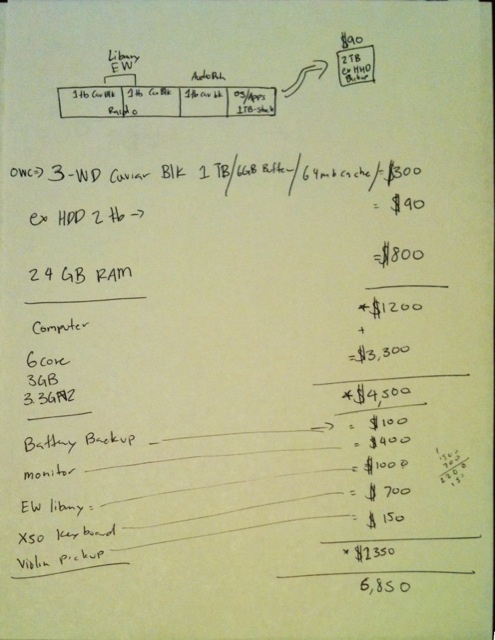 $90
Library
EW
2TB
ex HHD
1tb Cav Blk
1tb Cav Blk
1tb Cav blk
OS/Apps
1TB-stock
Raid 0
OWC=> 3-WD Caviar Blk 1 TB/6GB Buffer/64mb cache/=$300
ex HDD 2 tb-> = $90
24 GB RAM =$800
*$1200
+
Computer
6core =$3,300
3GB
3.3GHZ *$4,500
Battery Backup = $100
monitor = $400
EW library = = $1000
X50 keyboard = $700
Violin pickup = $150
*$2350
6,850